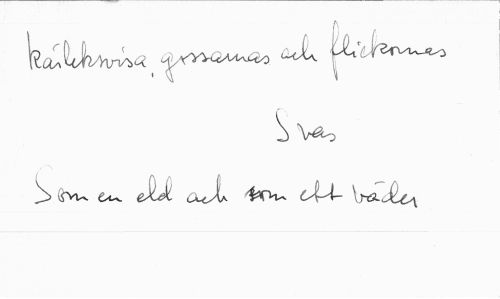 kärleksvisa, gossarnas och flickornas
Svas
Som en eld och som ett väder